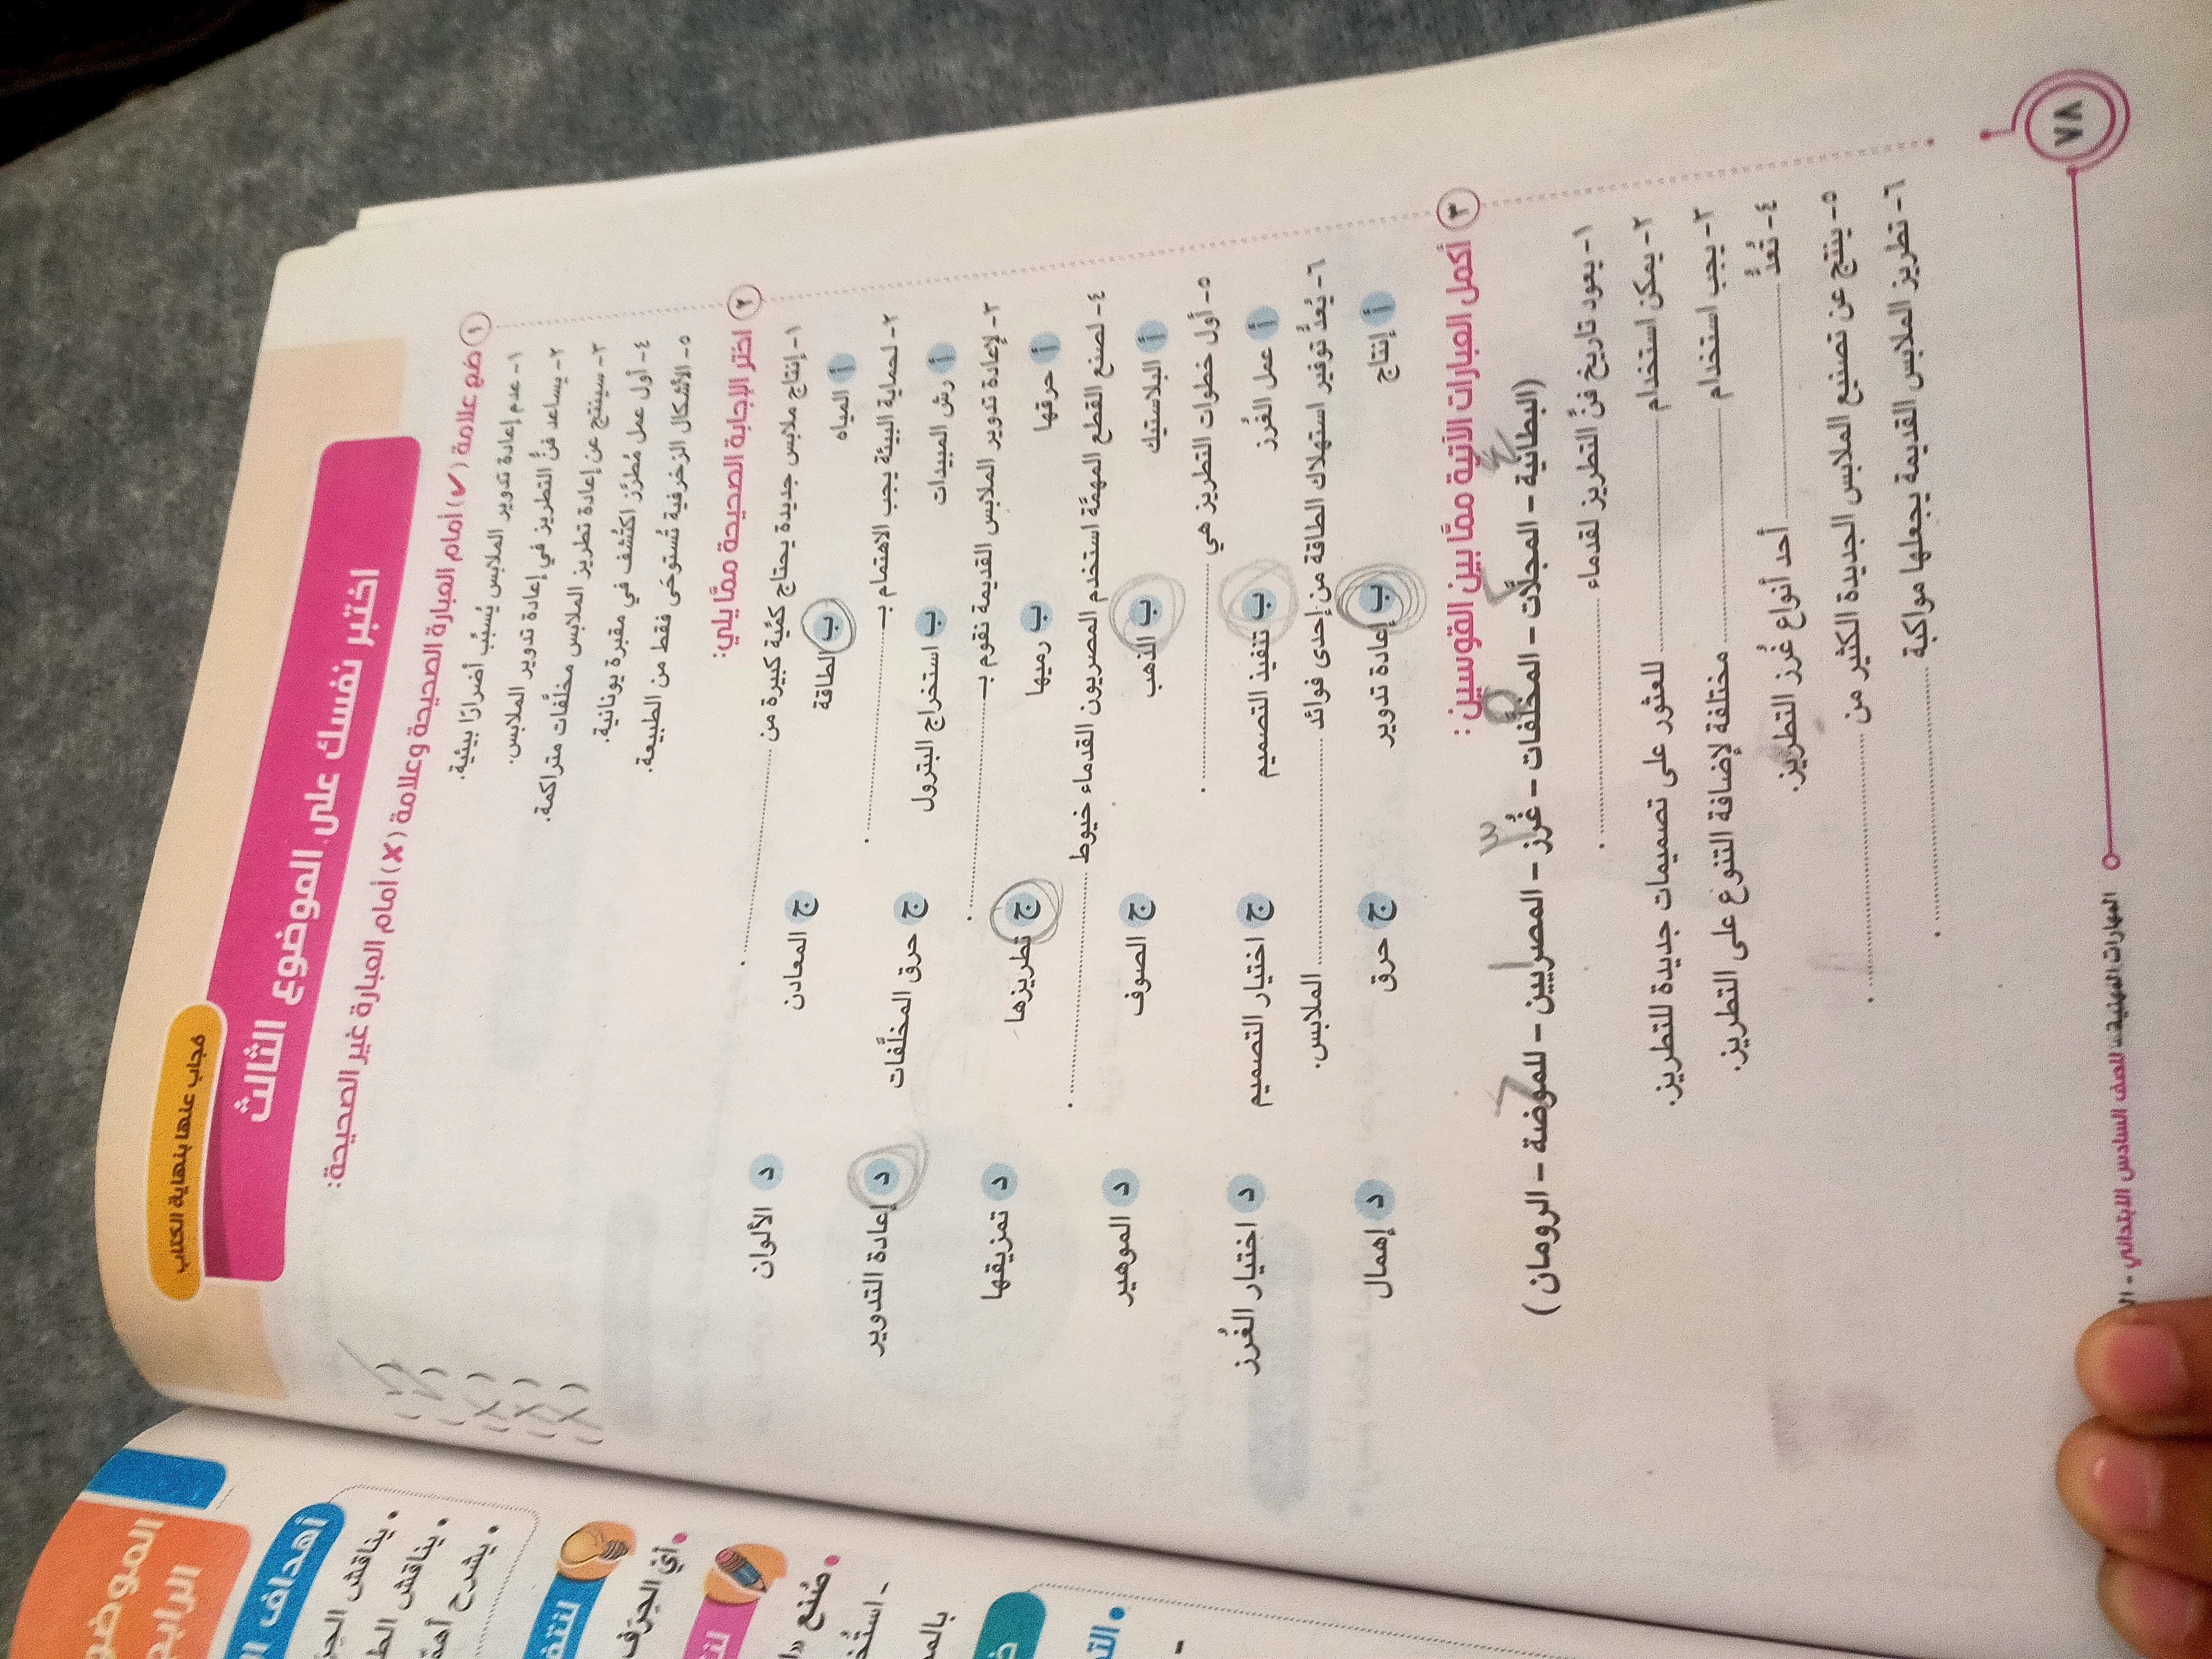 مجاب عنها بنهاية الكتاب
اختبر نفسك على الموضوع الثالث
١ ضع علامة (✔) أمام العبارة الصحيحة وعلامة (✘) أمام العبارة غير الصحيحة:
١- عدم إعادة تدوير الملابس يُسبِّب أضرارًا بيئية. ( ✓ )
٢- يساعد فنُّ التطريز في إعادة تدوير الملابس. ( ✓ )
٣- سينتج عن إعادة تطريز الملابس مخلَّفات متراكمة. ( X )
٤- أول عمل مُطرَّز اكتُشف في مقبرة يونانية. ( X )
٥- الأشكال الزخرفية تُستوحَى فقط من الطبيعة. ( X )
٢ اختر الإجابة الصحيحة ممَّا يلي:
١- إنتاج ملابس جديدة يحتاج كميَّة كبيرة من ............ .
أ المياه ب الطاقة ج المعادن د الألوان
٢- لحماية البيئة يجب الاهتمام بـ ............ .
أ رش المبيدات ب استخراج البترول ج حرق المخلَّفات د إعادة التدوير
٣- لإعادة تدوير الملابس القديمة نقوم بـ ............ .
أ حرقها ب رميها ج تطريزها د تمزيقها
٤- لصنع القطع المهمَّة استخدم المصريون القدماء خيوط ............ .
أ البلاستيك ب الذهب ج الصوف د الموهير
٥- أول خطوات التطريز هي ............ .
أ عمل الغُرز ب تنفيذ التصميم ج اختيار التصميم د اختيار الغُرز
٦- يُعدُّ توفير استهلاك الطاقة من إحدى فوائد ............ الملابس.
أ إنتاج ب إعادة تدوير ج حرق د إهمال
٣ أكمل العبارات الآتية ممَّا بين القوسين:
(البطانية - المجلَّات - المخلَّفات - غُرز - المصريين - للموضة - الرومان)
٤ ٢ ٥ ٣ ١ ٦
١- يعود تاريخ فنِّ التطريز لقدماء ............ .
٢- يمكن استخدام ............ للعثور على تصميمات جديدة للتطريز.
٣- يجب استخدام ............ مختلفة لإضافة التنوع على التطريز.
٤- تُعدُّ ............ أحد أنواع غُرز التطريز.
٥- ينتج عن تصنيع الملابس الجديدة الكثير من ............ .
٦- تطريز الملابس القديمة يجعلها مواكبة ............ .
٧٨
المهارات المهنية للصف السادس الابتدائي - ال
الموضو
الرابع
أهداف ا
• يناقش الحِرَ
• يناقش الط
• يشرح أهمّ
لنتف
• أيُّ الحِرَف
• صُنع «ا
- استُخ
بالمد
• الت